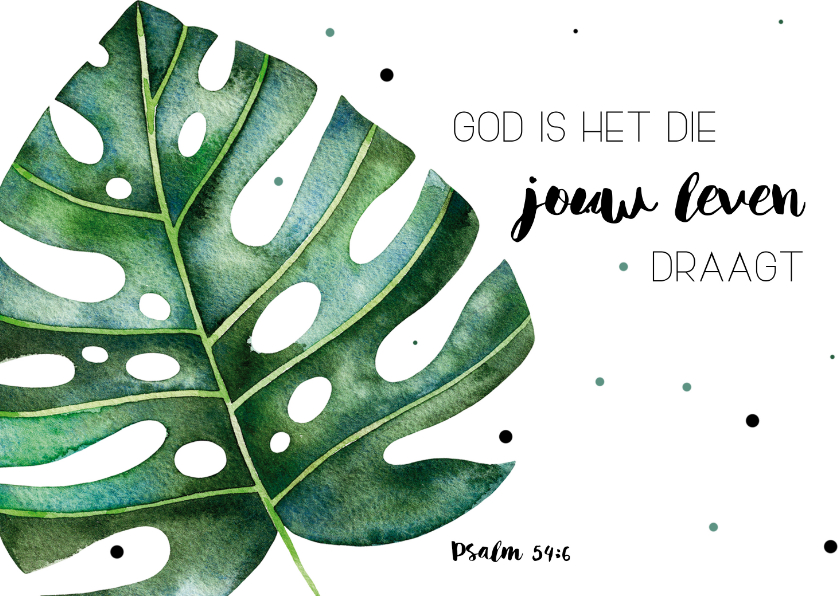 GOD IS HET DIE
jouw leven
DRAAGT
Psalm 54:6